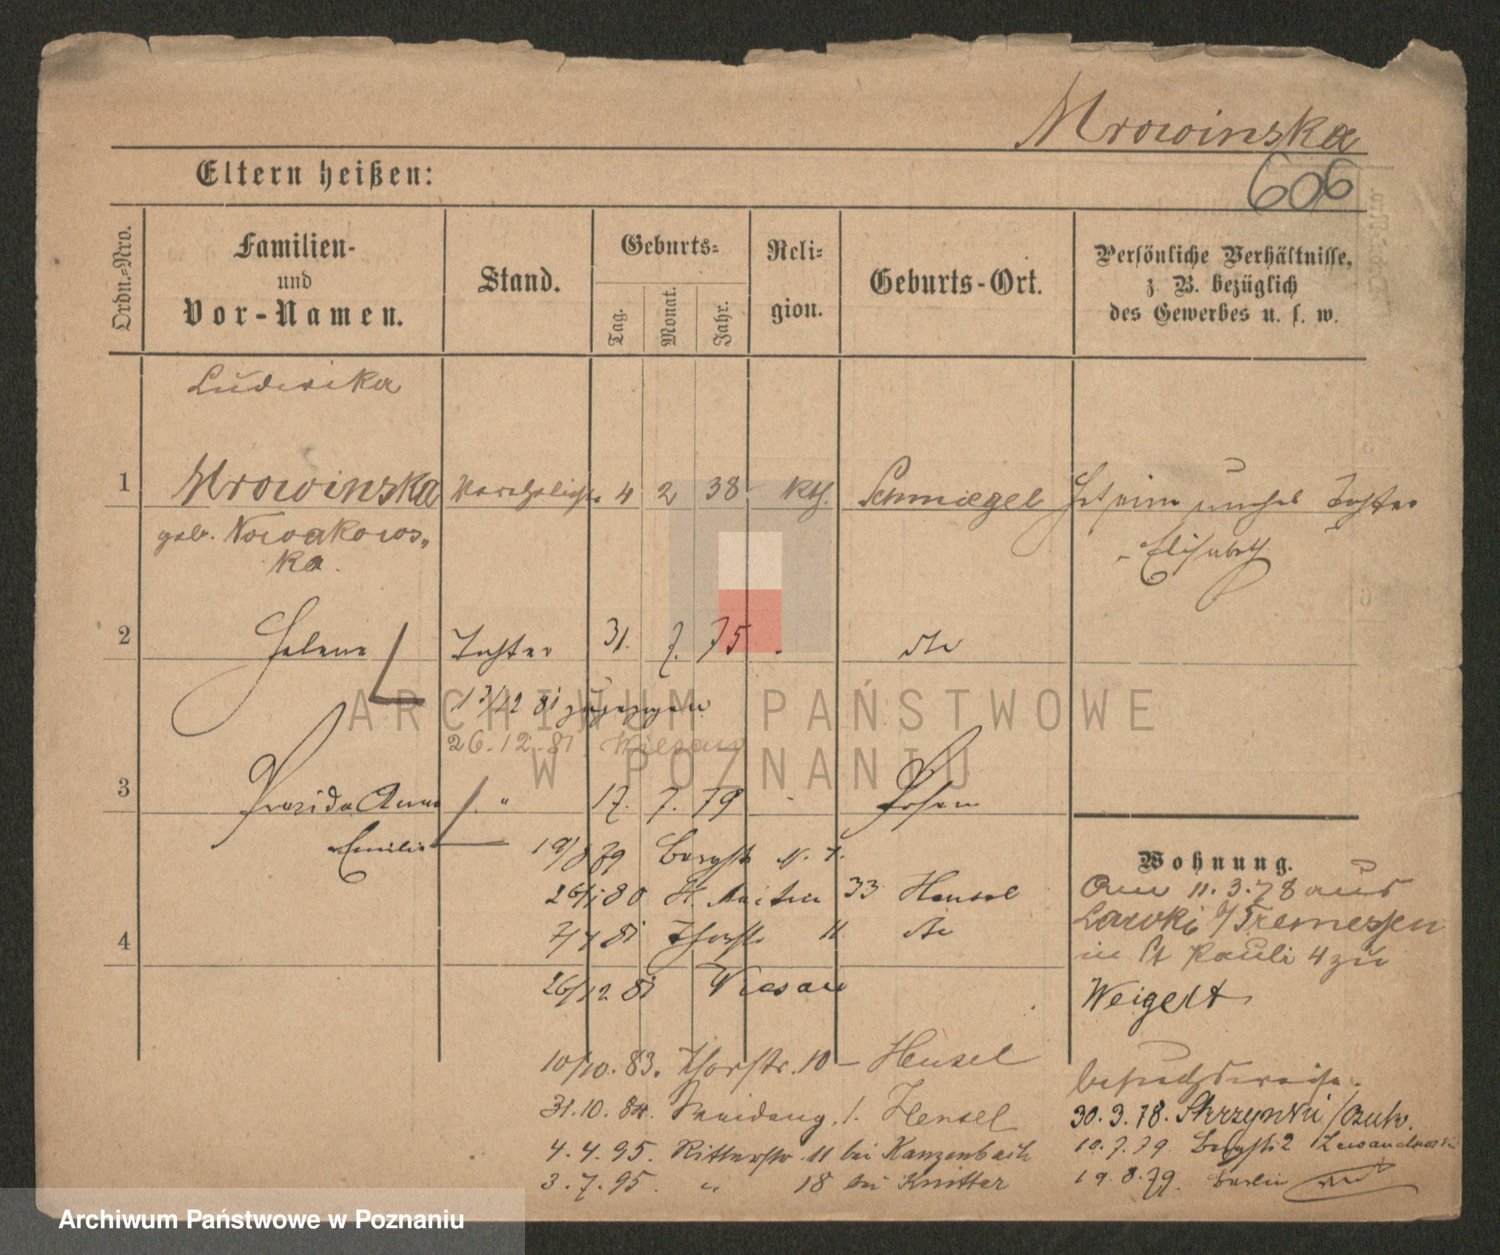 Mrowinska
606
Eltern heißen:
Ordn.-Nro.
Familien-
und
Vor-Namen.
Stand.
Geburts-
Tag.
Monat.
Jahr.
Reli-
gion.
Geburts-Ort.
Persönliche Verhältnisse,
z. B. bezüglich
des Gewerbes u. s. w.
Ludwika
1 Mrowinska 4 2 38 kth. Schmiegel Hat eine Tochter
geb. Nowakows-
ka.
Elisabeth
2 Helene Tochter 31. 7. 75 dto
13/12 81 zugezogen
26.12.81 Wiesau
ARCHIWUM PAŃSTWOWE
W POZNANIU
3 Praxida Anna " 17. 7. 79 Posen
Emilie
19/8 79 Bergstr N. 7.
26/1 80 St Martin 33 Hensel
7/4 81 Thorstr 11 dto
4
26/12 81 Wiesau
10/10. 83. Thorstr. 10 – Hensel
31.10.84. 1. Hensel
4.4.95. Ritterstr. 11 bei Kanzenbach
3.7.95. " 18 bei Knitter
Wohnung.
Am 11.3.78 aus
Lawki b/Tremessen
in St Pauli 4 zu
Weigelt
besuchsweise.
30.3.78. Skrzynki /Buk.
10.7.79 Bergstr 2 Lewandowski
19.8.79. Berlin
Archiwum Państwowe w Poznaniu